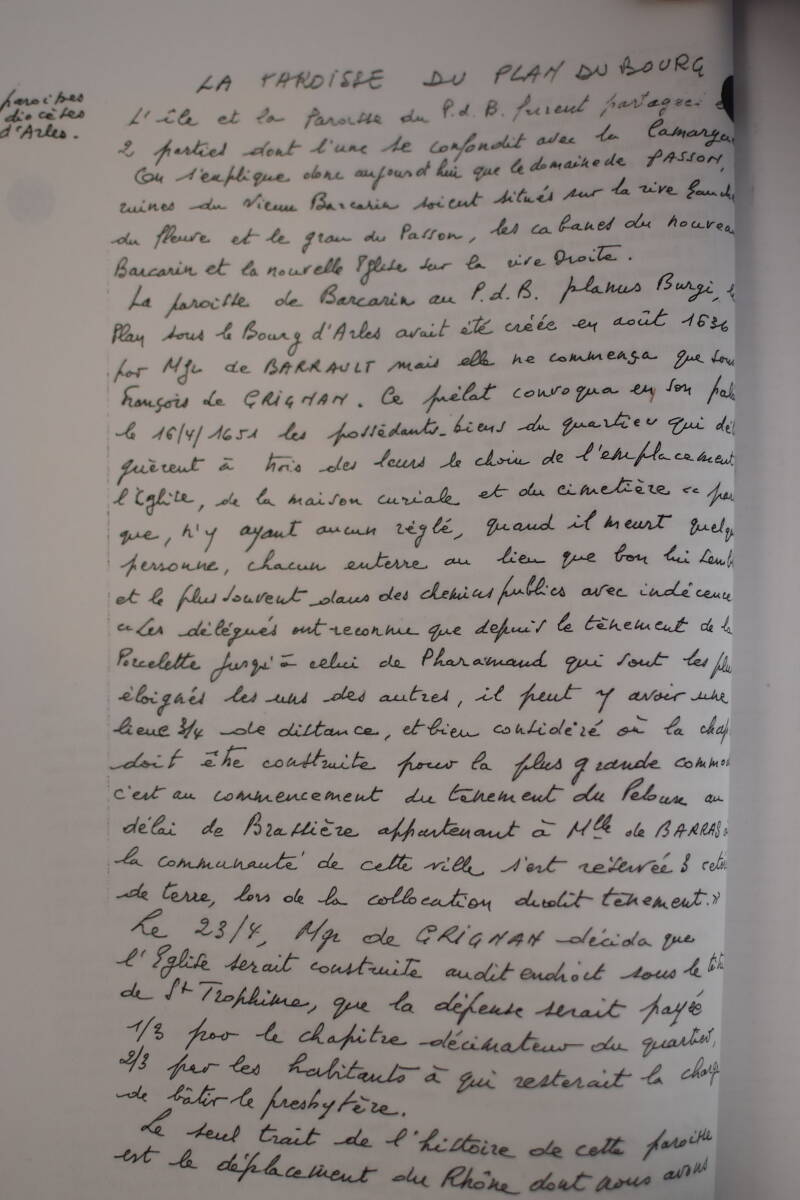 LA PAROISSE DU PLAN DU BOURG
paroisses
diocèses
d'Arles.
L'île et la Paroisse du P.d.B. furent partagées
2 parties dont l'une se confondit avec la Camargue
On s'explique donc aujourd'hui que le domaine de PASSON,
ruines du Vieux Barcarin soient situés sur la rive Gauche
du fleuve et le grau du Passon, les cabanes du nouveau
Barcarin et la nouvelle Eglise sur la rive Droite.
La paroisse de Barcarin au P.d.B. planus Burgi, le
Plan sous le Bourg d'Arles avait été créée en août 1636
par Mgr de BARRAULT mais elle ne commença que sous
François de GRIGNAN. Ce prélat convoqua en son pala
le 16/4/1651 les possédants-biens du quartier qui délé
guèrent à trois des leurs le choix de l'emplacement
l'Eglise, de la maison curiale et du cimetière "par
que, n'y ayant aucun réglé, quand il meurt quelqu
personne, chacun enterre au lieu que bon lui semb
et le plus souvent dans des chemins publics avec indécence
"Les délégués ont reconnu que depuis le tènement de la
Porcelette jusqu'à celui de Pharamand qui sont les plu
éloignés les uns des autres, il peut y avoir une
lieue 3/4 de distance, et bien considéré où la chap
doit être construite pour la plus grande commod
c'est au commencement du tènement du Peloux au
délai de Brassière appartenant à Mlle de BARRAS
la communauté de cette ville s'est réservée 3
de terre, lors de la collocation dudit tènement."
Le 23/4, Mgr de GRIGNAN décida que
l'Eglise serait construite audit endroit sous le tit
de St Trophime, que la dépense serait payée
1/3 par le chapitre décimateur du quartier,
2/3 par les habitants à qui resterait la charge
de bâtir le presbytère.
Le seul trait de l'histoire de cette paroisse
est le déplacement du Rhône dont nous avons